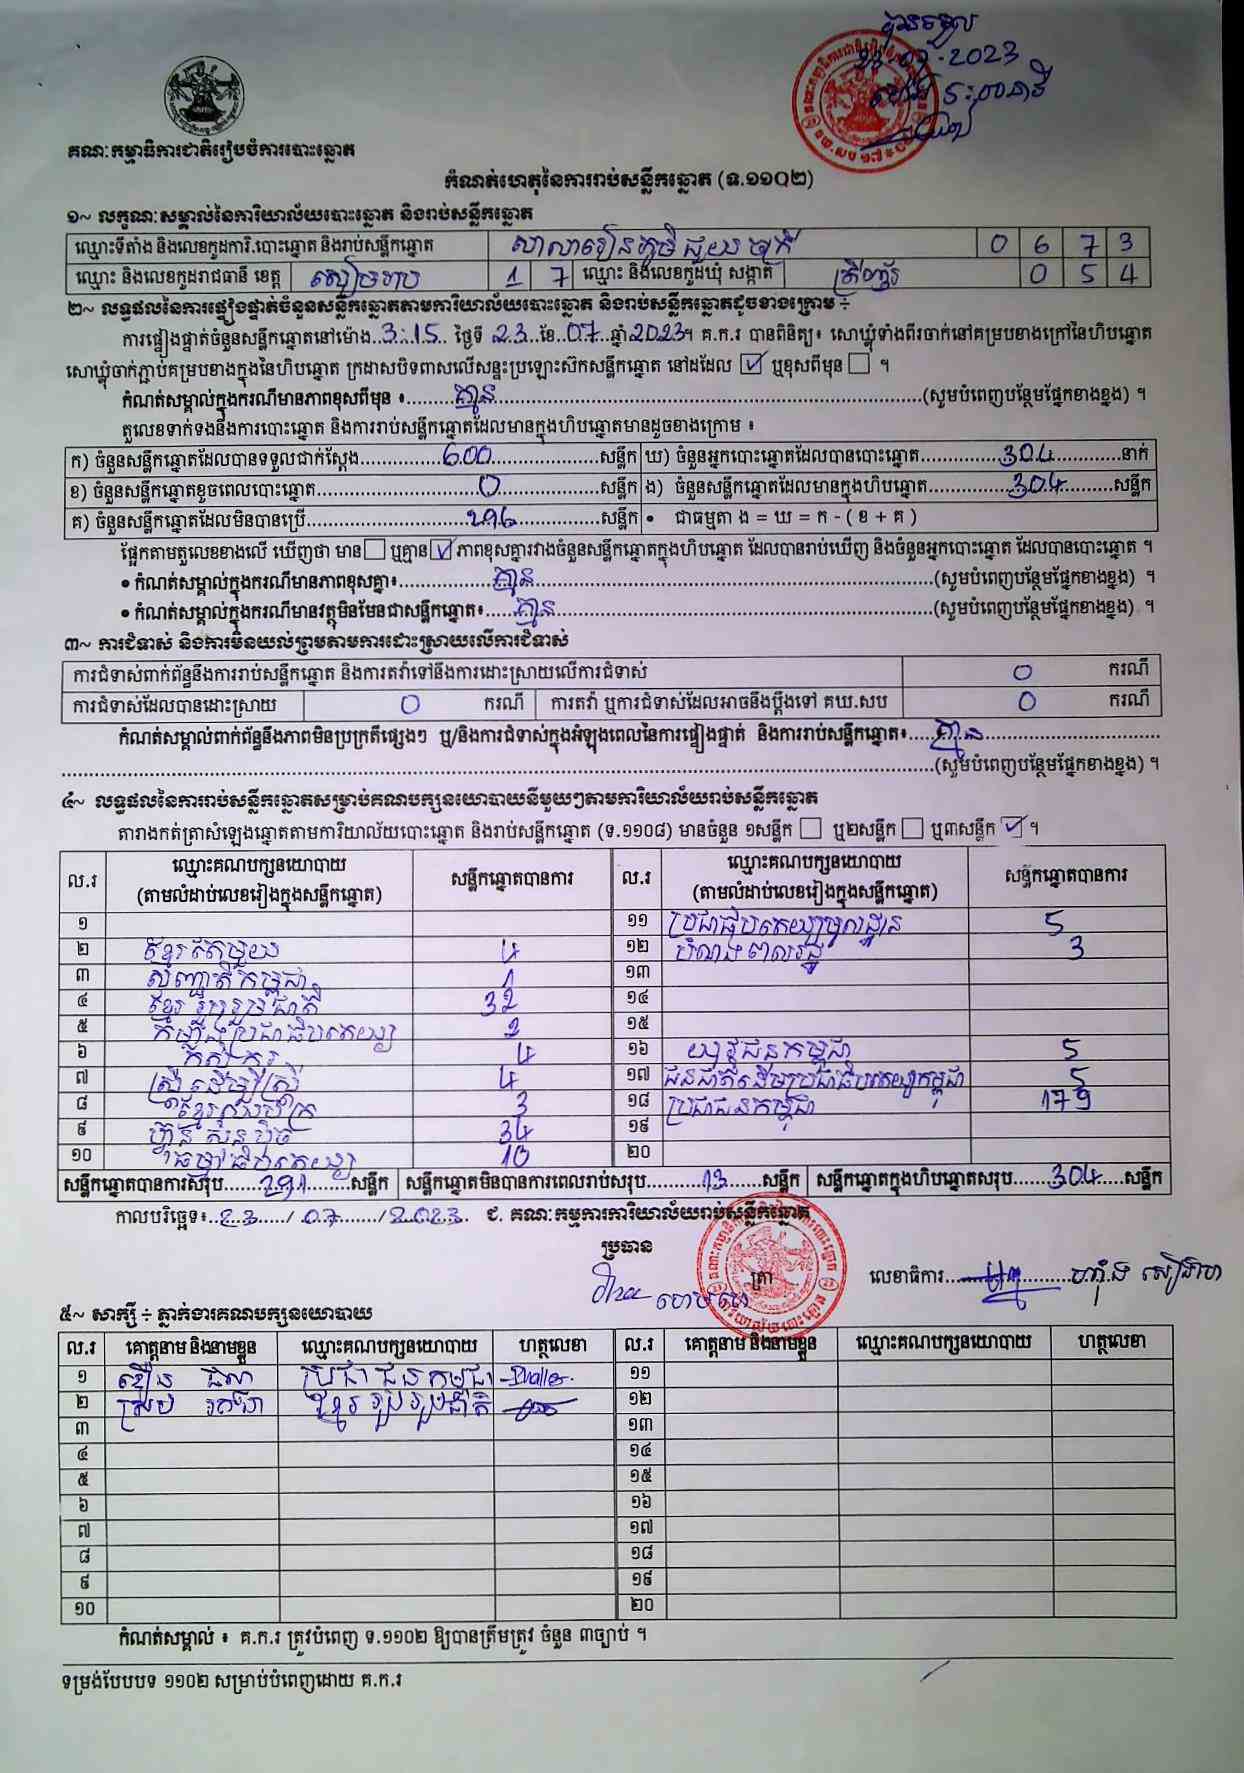 បានទទួល
23-07-2023
គណៈកម្មាធិការជាតិរៀបចំការបោះឆ្នោត
កំណត់ហេតុនៃការរាប់សន្លឹកឆ្នោត (ទ.១១០២)
១~ លក្ខណៈសម្គាល់នៃការិយាល័យបោះឆ្នោត និងរាប់សន្លឹកឆ្នោត
ឈ្មោះទីតាំង និងលេខកូដការិ.បោះឆ្នោត និងរាប់សន្លឹកឆ្នោត សាលារៀនភូមិ ជួយ 0 6 7 3
ឈ្មោះ និងលេខកូដរាជធានី ខេត្ត សៀមរាប 1 7 ឈ្មោះ និងលេខកូដឃុំ សង្កាត់ 0 5 4
២~ លទ្ធផលនៃការផ្ទៀងផ្ទាត់ចំនួនសន្លឹកឆ្នោតតាមការិយាល័យបោះឆ្នោត និងរាប់សន្លឹកឆ្នោតដូចខាងក្រោម ÷
ការផ្ទៀងផ្ទាត់ចំនួនសន្លឹកឆ្នោតនៅម៉ោង..3:15.. ថ្ងៃទី 23..ខែ.07..ឆ្នាំ 2023។ គ.ក.រ បានពិនិត្យ៖ សោឃ្លុំទាំងពីរចាក់នៅគម្របខាងក្រៅនៃហិបឆ្នោត
សោឃ្លុំចាក់ភ្ជាប់គម្របខាងក្នុងនៃហិបឆ្នោត ក្រដាសបិទពាសលើសន្ទះប្រឡោះស៊កសន្លឹកឆ្នោត នៅដដែល ☑ ឬខុសពីមុន ☐ ។
កំណត់សម្គាល់ក្នុងករណីមានភាពខុសពីមុន ៖.........គ្មាន.........(សូមបំពេញបន្ថែមផ្នែកខាងខ្នង) ។
តួលេខទាក់ទងនឹងការបោះឆ្នោត និងការរាប់សន្លឹកឆ្នោតដែលមានក្នុងហិបឆ្នោតមានដូចខាងក្រោម ៖
ក) ចំនួនសន្លឹកឆ្នោតដែលបានទទួលជាក់ស្តែង..........600..........សន្លឹក ឃ) ចំនួនអ្នកបោះឆ្នោតដែលបានបោះឆ្នោត..........304..........នាក់
ខ) ចំនួនសន្លឹកឆ្នោតខូចពេលបោះឆ្នោត..........0..........សន្លឹក ង) ចំនួនសន្លឹកឆ្នោតដែលមានក្នុងហិបឆ្នោត..........304..........សន្លឹក
គ) ចំនួនសន្លឹកឆ្នោតដែលមិនបានប្រើ..........296..........សន្លឹក • ជាធម្មតា ង = ឃ = ក - ( ខ + គ )
ផ្អែកតាមតួលេខខាងលើ ឃើញថា មាន ☐ ឬគ្មាន ☑ ភាពខុសគ្នារវាងចំនួនសន្លឹកឆ្នោតក្នុងហិបឆ្នោត ដែលបានរាប់ឃើញ និងចំនួនអ្នកបោះឆ្នោត ដែលបានបោះឆ្នោត ។
• កំណត់សម្គាល់ក្នុងករណីមានភាពខុសគ្នា៖.........គ្មាន.........(សូមបំពេញបន្ថែមផ្នែកខាងខ្នង) ។
• កំណត់សម្គាល់ក្នុងករណីមានវត្ថុមិនមែនជាសន្លឹកឆ្នោត៖......គ្មាន.........(សូមបំពេញបន្ថែមផ្នែកខាងខ្នង) ។
៣~ ការជំទាស់ និងការមិនយល់ព្រមតាមការដោះស្រាយលើការជំទាស់
ការជំទាស់ពាក់ព័ន្ធនឹងការរាប់សន្លឹកឆ្នោត និងការតវ៉ាទៅនឹងការដោះស្រាយលើការជំទាស់ 0 ករណី
ការជំទាស់ដែលបានដោះស្រាយ 0 ករណី ការតវ៉ា ឬការជំទាស់ដែលអាចនឹងប្តឹងទៅ គឃ.សប 0 ករណី
កំណត់សម្គាល់ពាក់ព័ន្ធនឹងភាពមិនប្រក្រតីផ្សេងៗ ឬ/និងការជំទាស់ក្នុងអំឡុងពេលនៃការផ្ទៀងផ្ទាត់ និងការរាប់សន្លឹកឆ្នោត៖......គ្មាន.........
.........(សូមបំពេញបន្ថែមផ្នែកខាងខ្នង) ។
៤~ លទ្ធផលនៃការរាប់សន្លឹកឆ្នោតសម្រាប់គណបក្សនយោបាយនីមួយៗតាមការិយាល័យរាប់សន្លឹកឆ្នោត
តារាងកត់ត្រាសំឡេងឆ្នោតតាមការិយាល័យបោះឆ្នោត និងរាប់សន្លឹកឆ្នោត (ទ.១១០៨) មានចំនួន ១សន្លឹក ☐ ឬ២សន្លឹក ☐ ឬ៣សន្លឹក ☑ ។
ល.រ ឈ្មោះគណបក្សនយោបាយ (តាមលំដាប់លេខរៀងក្នុងសន្លឹកឆ្នោត) សន្លឹកឆ្នោតបានការ ល.រ ឈ្មោះគណបក្សនយោបាយ (តាមលំដាប់លេខរៀងក្នុងសន្លឹកឆ្នោត) សន្លឹកឆ្នោតបានការ
១ ១១ ប្រជាធិបតេយ្យមូលដ្ឋាន 5
២ ខ្មែរតែមួយ 4 ១២ បំណងពលរដ្ឋ 3
៣ សញ្ជាតិកម្ពុជា 1 ១៣
៤ ខ្មែររួបរួមជាតិ 32 ១៤
៥ កម្លាំងប្រជាធិបតេយ្យ 2 ១៥
៦ កសិករ 4 ១៦ យុវជនកម្ពុជា 5
៧ ស្ត្រីដើម្បីស្ត្រី 4 ១៧ ជនជាតិដើមប្រជាធិបតេយ្យកម្ពុជា 5
៨ ខ្មែរអភិរក្ស 3 ១៨ ប្រជាជនកម្ពុជា 179
៩ ហ៊្វុនស៊ិនប៉ិច 34 ១៩
១០ ធម្មាធិបតេយ្យ 10 ២០
សន្លឹកឆ្នោតបានការសរុប......291.........សន្លឹក សន្លឹកឆ្នោតមិនបានការពេលរាប់សរុប.........13.........សន្លឹក សន្លឹកឆ្នោតក្នុងហិបឆ្នោតសរុប......304....សន្លឹក
កាលបរិច្ឆេទ៖..23...../.07....../.2023. ជ. គណៈកម្មការការិយាល័យរាប់សន្លឹកឆ្នោត
ប្រធាន
ត្រា លេខាធិការ
៥~ សាក្សី ÷ ភ្នាក់ងារគណបក្សនយោបាយ
ល.រ គោត្តនាម និងនាមខ្លួន ឈ្មោះគណបក្សនយោបាយ ហត្ថលេខា ល.រ គោត្តនាម និងនាមខ្លួន ឈ្មោះគណបក្សនយោបាយ ហត្ថលេខា
១ ប្រជាជនកម្ពុជា ១១
២ ខ្មែររួបរួមជាតិ ១២
៣ ១៣
៤ ១៤
៥ ១៥
៦ ១៦
៧ ១៧
៨ ១៨
៩ ១៩
១០ ២០
កំណត់សម្គាល់ ៖ គ.ក.រ ត្រូវបំពេញ ទ.១១០២ ឱ្យបានត្រឹមត្រូវ ចំនួន ៣ច្បាប់ ។
ទម្រង់បែបបទ ១១០២ សម្រាប់បំពេញដោយ គ.ក.រ